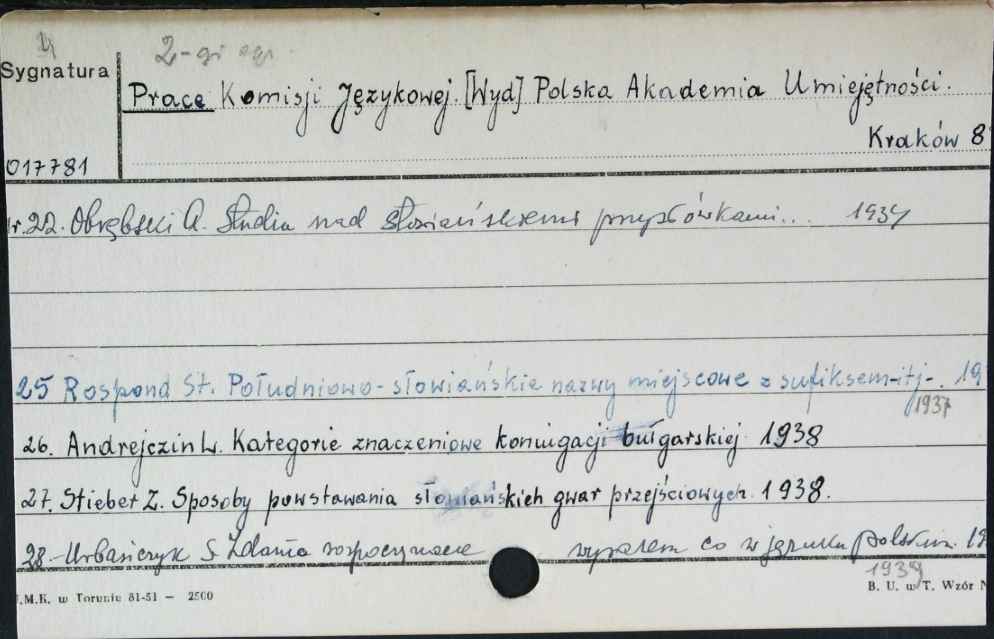 2-gi egz.
Sygnatura
Prace Komisji Językowej. [Wyd] Polska Akademia Umiejętności.
Kraków 8°
017781
Nr. 22. Obrębski A. Studia nad słowiańskiemi przysłówkami... 1934
25 Rospond St. Południowo-słowiańskie nazwy miejscowe z sufiksem -itj-. 19
1937
26. Andrejczin L. Kategorie znaczeniowe koniugacji bułgarskiej 1938
27. Stieber Z. Sposoby powstawania słowiańskich gwar przejściowych. 1938.
28. Urbańczyk S. Zdania rozpoczynane wyrazem co w języku polskim. 19
1939
U.M.K. w Toruniu 81-51 — 2500
B. U. w T. Wzór N